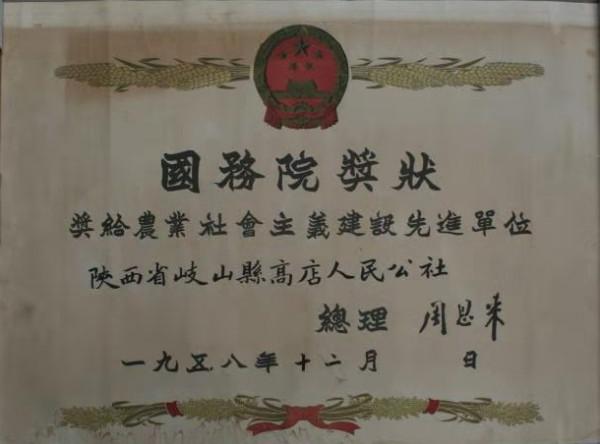 國務院獎狀
奬給農業社會主義建設先進單位
陝西省岐山縣高店人民公社
總理 周恩來
一九五八年十二月 日